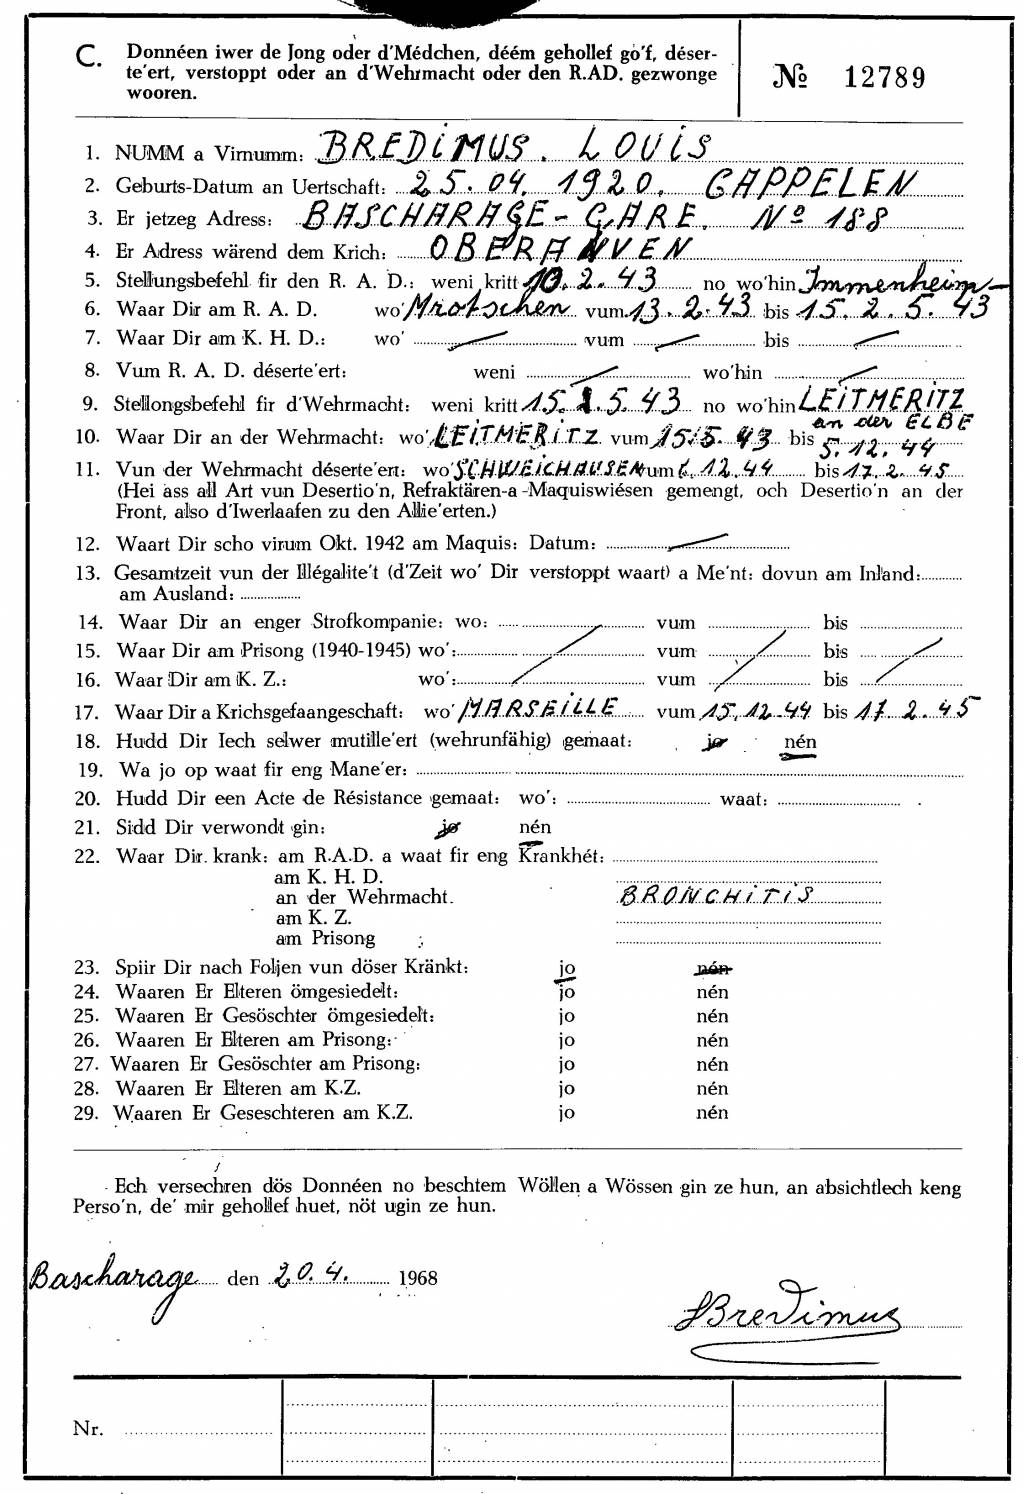 C. Donnéen iwer de Jong oder d'Médchen, déém gehollef go'f, déser-
te'ert, verstoppt oder an d'Wehrmacht oder den R.AD. gezwonge
wooren.
№ 12789
1. NUMM a Virnumm: BREDIMUS. LOUIS
2. Geburts-Datum an Uertschaft: 25.04. 1920. CAPPELEN
3. Er jetzeg Adress: BASCHARAGE-GARE. Nº 188
4. Er Adress wärend dem Krich: OBERANVEN
5. Stellungsbefehl fir den R. A. D.: weni kritt 10.2.43 no wo'hin Immenheim
6. Waar Dir am R. A. D. wo' Mrotschen vum 13.2.43 bis 15.2.5.43
7. Waar Dir am K. H. D.: wo' vum bis
8. Vum R. A. D. déserte'ert: weni wo'hin
9. Stellongsbefehl fir d'Wehrmacht: weni kritt 15. 5.43 no wo'hin LEITMERITZ
an der ELBE
10. Waar Dir an der Wehrmacht: wo' LEITMERITZ vum 15.5.43 bis 5.12.44
11. Vun der Wehrmacht déserte'ert: wo' SCHWEICHAUSEN um 6.12.44 bis 17.2.45
(Hei ass all Art vun Desertio'n, Refraktären-a-Maquiswiésen gemengt, och Desertio'n an der
Front, also d'Iwerlaafen zu den Allie'erten.)
12. Waart Dir scho virum Okt. 1942 am Maquis: Datum:
13. Gesamtzeit vun der Illégalite't (d'Zeit wo' Dir verstoppt waart) a Me'nt: dovun am Inland:
am Ausland:
14. Waar Dir an enger Strofkompanie: wo: vum bis
15. Waar Dir am Prisong (1940-1945) wo': vum bis
16. Waar Dir am K. Z.: wo': vum bis
17. Waar Dir a Krichsgefaangeschaft: wo' MARSEILLE vum 15.12.44 bis 17.2.45
18. Hudd Dir Iech selwer mutille'ert (wehrunfähig) gemaat: jo nén
19. Wa jo op waat fir eng Mane'er:
20. Hudd Dir een Acte de Résistance gemaat: wo': waat:
21. Sidd Dir verwondt gin: jo nén
22. Waar Dir krank: am R.A.D. a waat fir eng Krankhét:
am K. H. D.
an der Wehrmacht. BRONCHITIS
am K. Z.
am Prisong
23. Spiir Dir nach Foljen vun döser Kränkt: jo nén
24. Waaren Er Elteren ömgesiedelt: jo nén
25. Waaren Er Gesöschter ömgesiedelt: jo nén
26. Waaren Er Elteren am Prisong: jo nén
27. Waaren Er Gesöschter am Prisong: jo nén
28. Waaren Er Elteren am K.Z. jo nén
29. Waaren Er Geseschteren am K.Z. jo nén
Ech versechren dös Donnéen no beschtem Wöllen a Wössen gin ze hun, an absichtlech keng
Perso'n, de' mir gehollef huet, nöt ugin ze hun.
Bascharage den 20.4. 1968
Bredimus
Nr.